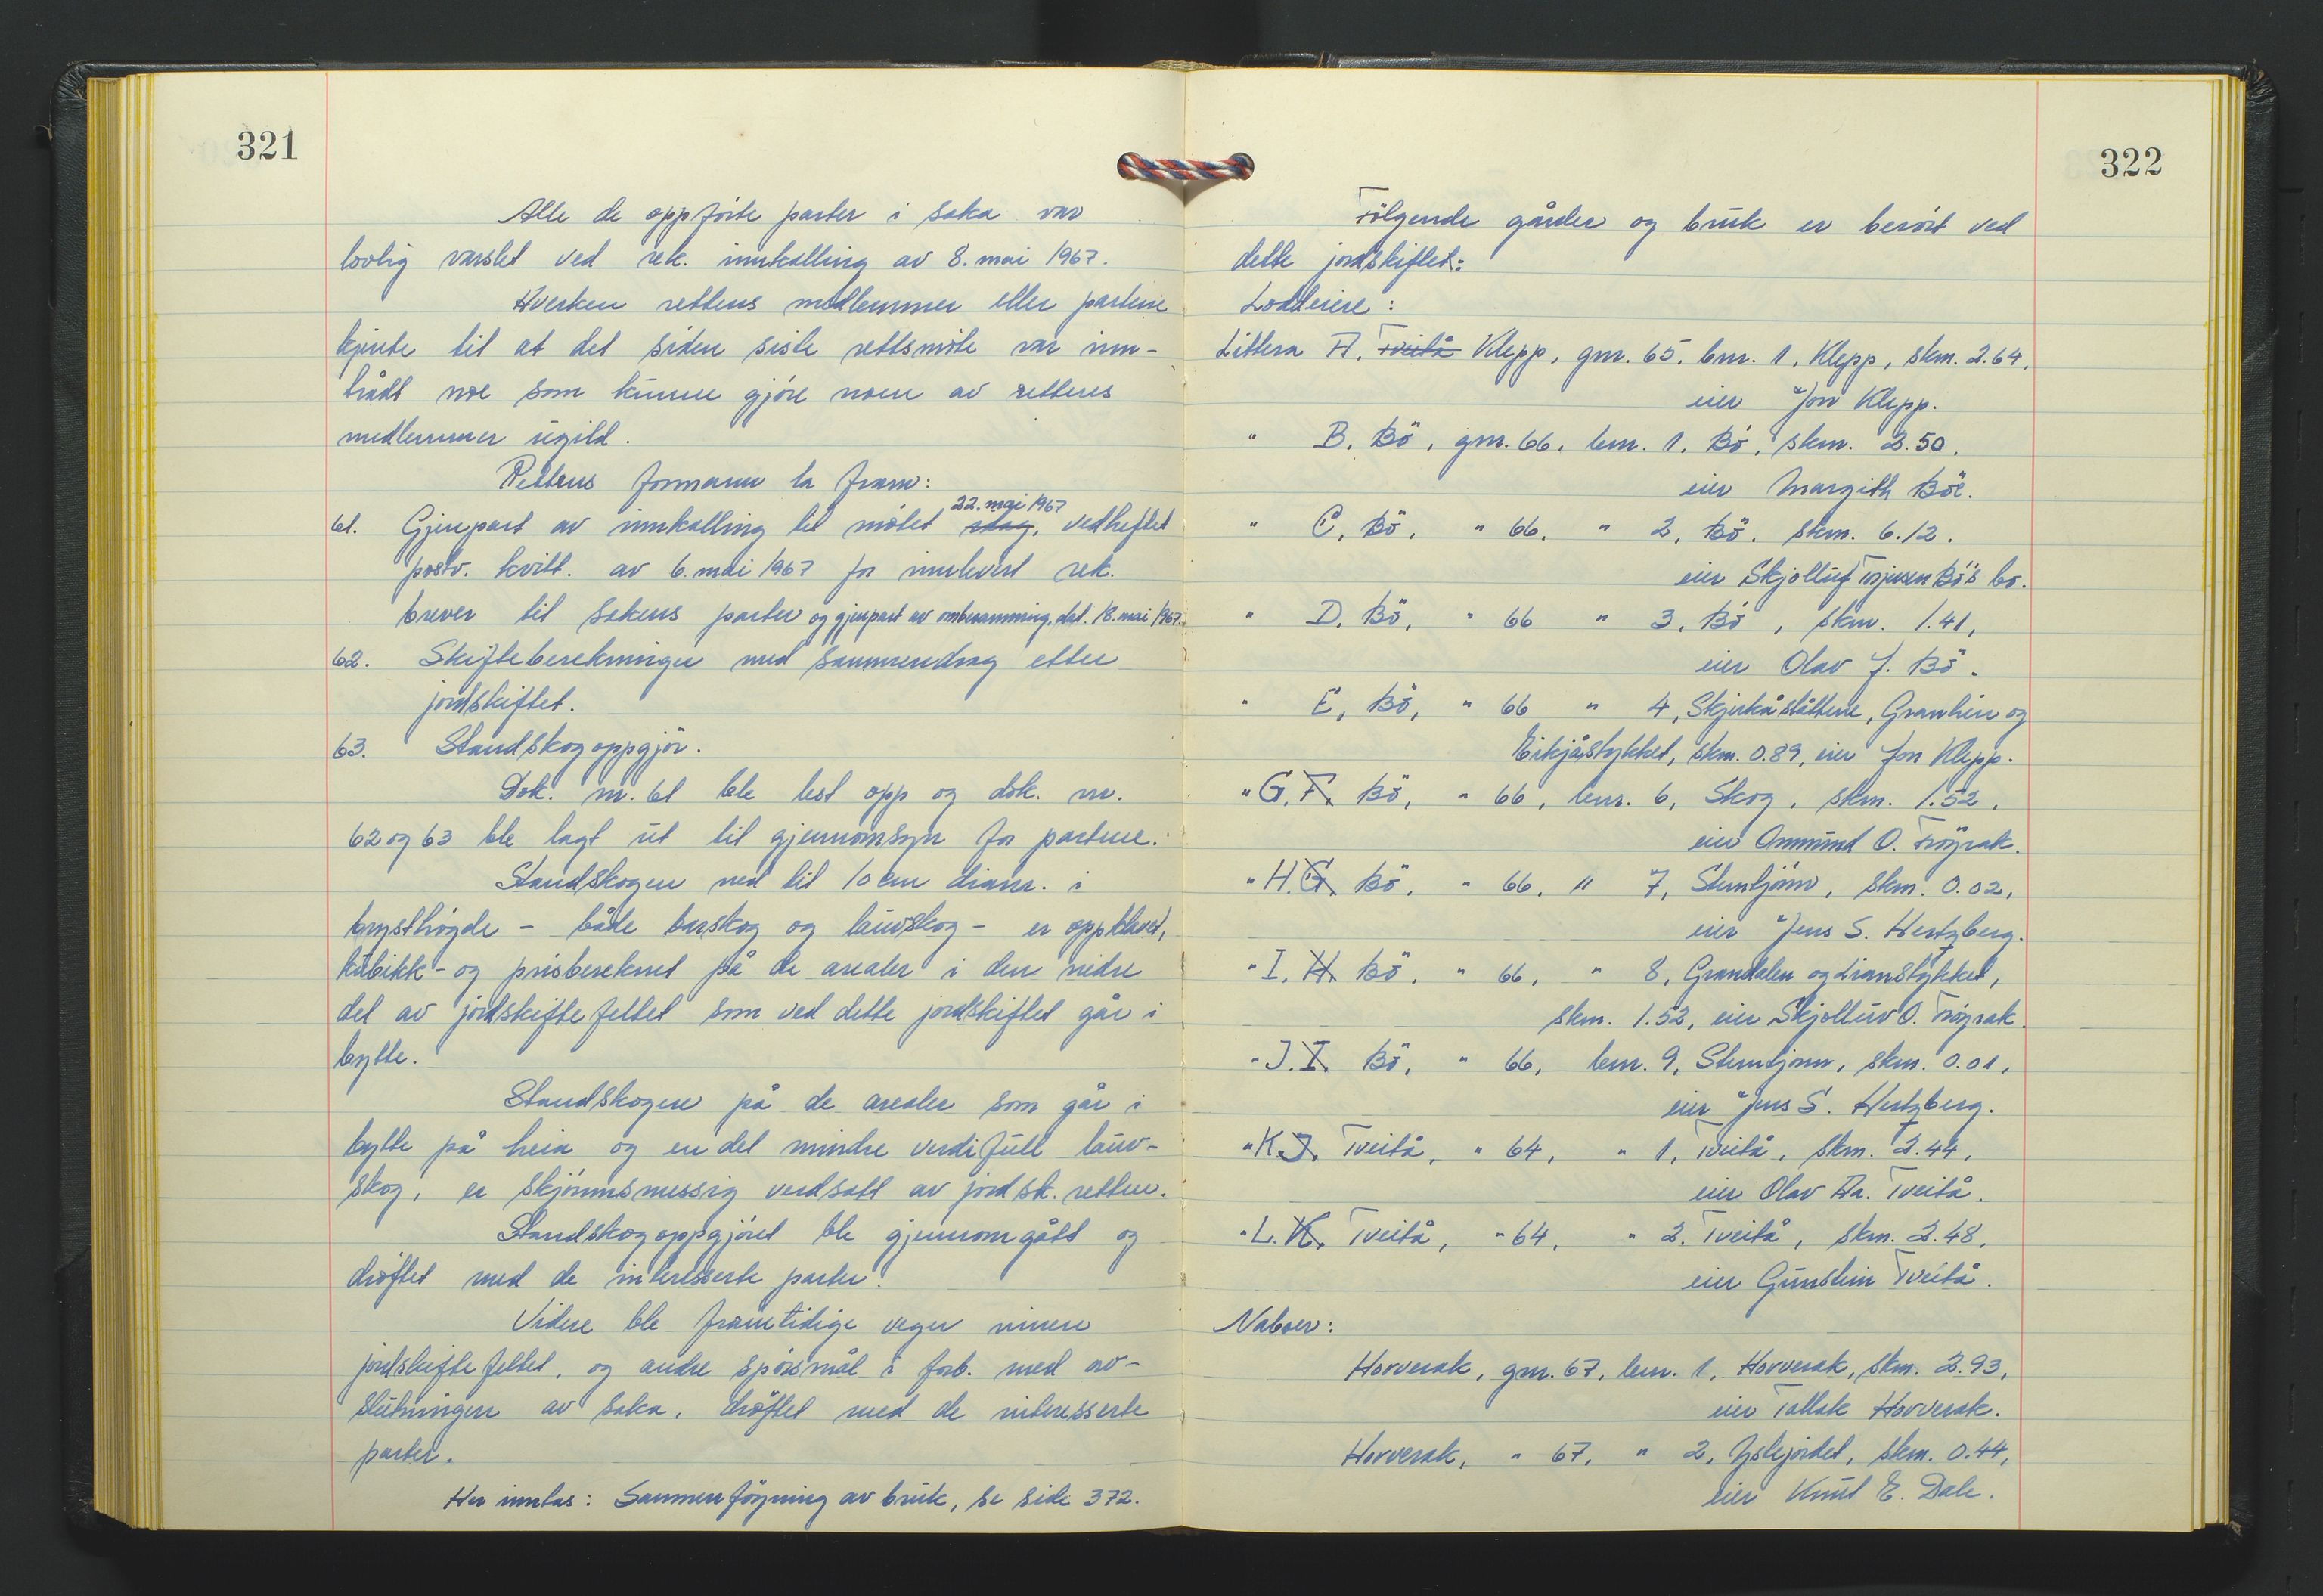 321
Alle de oppførte parter i saka var
lovlig varslet ved rek. innkalling av 8. mai 1967.
Hverken rettens medlemmer eller partene
kjente til at det siden siste rettsmøte var inn-
trådt noe som kunne gjøre noen av rettens
medlemmer ugild.
Rettens formann la fram:
22. mai 1967
61. Gjenpart av innkalling til møtet idag, vedheftet
postv. kvitt. av 6. mai 1967 for innlevert rek.
brever til sakens parter og gjenpart av omberamming, dat. 18. mai 1967.
62. Skifteberekninger med sammendrag etter
jordskiftet.
63. Standskogoppgjør.
Dok. nr. 61 ble lest opp og dok. nr.
62 og 63 ble lagt ut til gjennomsyn for partene.
Standskogen ned til 10 cm diam. i
brysthøgde - både barskog og lauvskog - er oppklavet,
kubikk- og prisbereknet på de arealer i den nedre
del av jordskiftefeltet som ved dette jordskiftet går i
bytte.
Standskogen på de arealer som går i
bytte på heia og en del mindre verdifull lauv-
skog, er skjønnsmessig verdsatt av jordsk. retten.
Standskogoppgjøret ble gjennomgått og
drøftet med de interesserte parter.
Videre ble framtidige veger innen
jordskiftefeltet, og andre spørsmål i forb. med av-
slutningen av saka, drøftet med de interesserte
parter.
Her inntas: Sammenføyning av bruk, se side 372.
322
Følgende gårder og bruk er berørt ved
dette jordskiftet:
Loddeiere:
Littera A. Tveitå Klepp, gnr. 65, bnr. 1, Klepp, skm. 2.64,
eier Jon Klepp.
" B. Bö, gnr. 66, bnr. 1, Bö, skm. 2.50,
eier Margith Böe.
" C, Bö, " 66, " 2, Bö, skm. 6.12.
eier Skjolluf Torjusen Bö's bo.
" D. Bö, " 66 " 3, Bö, skm. 1.41,
eier Olav J. Bö.
" E, Bö, " 66 " 4, Skjerkåslåttene, Granheim og
Eikjåstykket, skm. 0.89, eier Jon Klepp.
" G. F. Bö, " 66, bnr. 6, Skog, skm. 1.52,
eier Ommund O. Frøyrak.
" H. G. Bö, " 66, " 7, Stemtjönn, skm. 0.02,
eier Jens S. Hertzberg.
" I. H. Bö, " 66, " 8, Grandalen og Lianstykket,
skm. 1.52, eier Skjolluv O. Frøyrak.
" J. I. Bö, " 66, bnr. 9, Stemtjønn, skm. 0.01,
eier Jens S. Hertzberg.
" K. J. Tveitå, " 64, " 1, Tveitå, skm. 2.44,
eier Olav Aa. Tveitå.
" L. K. Tveitå, " 64, " 2. Tveitå, skm. 2.48,
eier Gunstein Tveitå.
Naboer:
Horverak, gnr. 67, bnr. 1, Horverak, skm. 2.93,
eier Tallak Horverak.
Horverak, " 67, " 2, skm. 0.44,
eier Knut E. Dale.